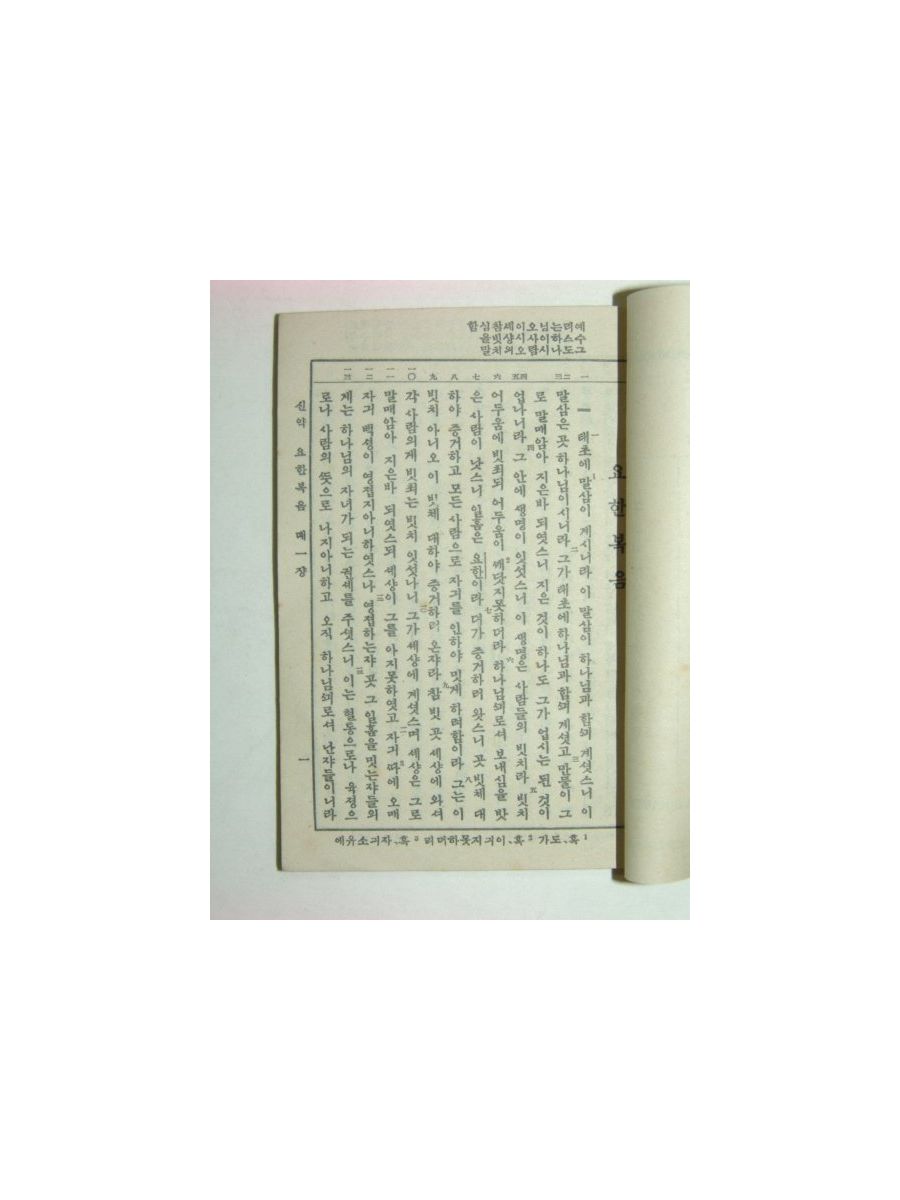 요한복음
예수그
리스도
는하나
님이시
오사람
이시오
세샹의
참빗치
심을말
함
一 二 三 四 五 六 七 八 九 一〇 一一 一二 一三
一 태초에 말삼이 게시니라 이 말삼이 하나님과 함ᄭᅴ 게셧스니 이
말삼은 곳 하나님이시니라 그가 태초에 하나님과 함ᄭᅴ 게셧고 만물이 그
로 말매암아 지은바 되엿스니 지은 것이 하나도 그가 업시는 된 것이
업나니라 그 안에 생명이 잇섯스니 이 생명은 사람들의 빗치라 빗치
어두움에 빗최되 어두움이 ᄭᅢ닷지못하더라 하나님ᄭᅴ로셔 보내심을 밧
은 사람이 낫스니 일홈은 요한이라 뎌가 증거하러 왓스니 곳 빗체 대
하야 증거하고 모든 사람으로 자긔를 인하야 밋게 하려함이라 그는 이
빗치 아니오 이 빗체 대하야 증거하러 온쟈라 참 빗 곳 세상에 와셔
각 사람의게 빗최는 빗치 잇섯나니 그가 세상에 게셧스며 세상은 그로
말매암아 지은바 되엿스되 세상이 그를 아지못하엿고 자긔 ᄯᅡ에 오매
자긔 백셩이 영접지아니하엿스나 영접하는쟈 곳 그 일홈을 밋는쟈들의
게는 하나님의 자녀가 되는 권셰를 주셧스니 이는 혈통으로나 육졍으
로나 사람의 ᄯᅳᆺ으로 나지아니하고 오직 하나님ᄭᅴ로셔 난쟈들이니라
1 혹、도가 2 혹、이긔지못하더라 3 혹、자긔소유에
신약 요한복음 뎨一쟝 一